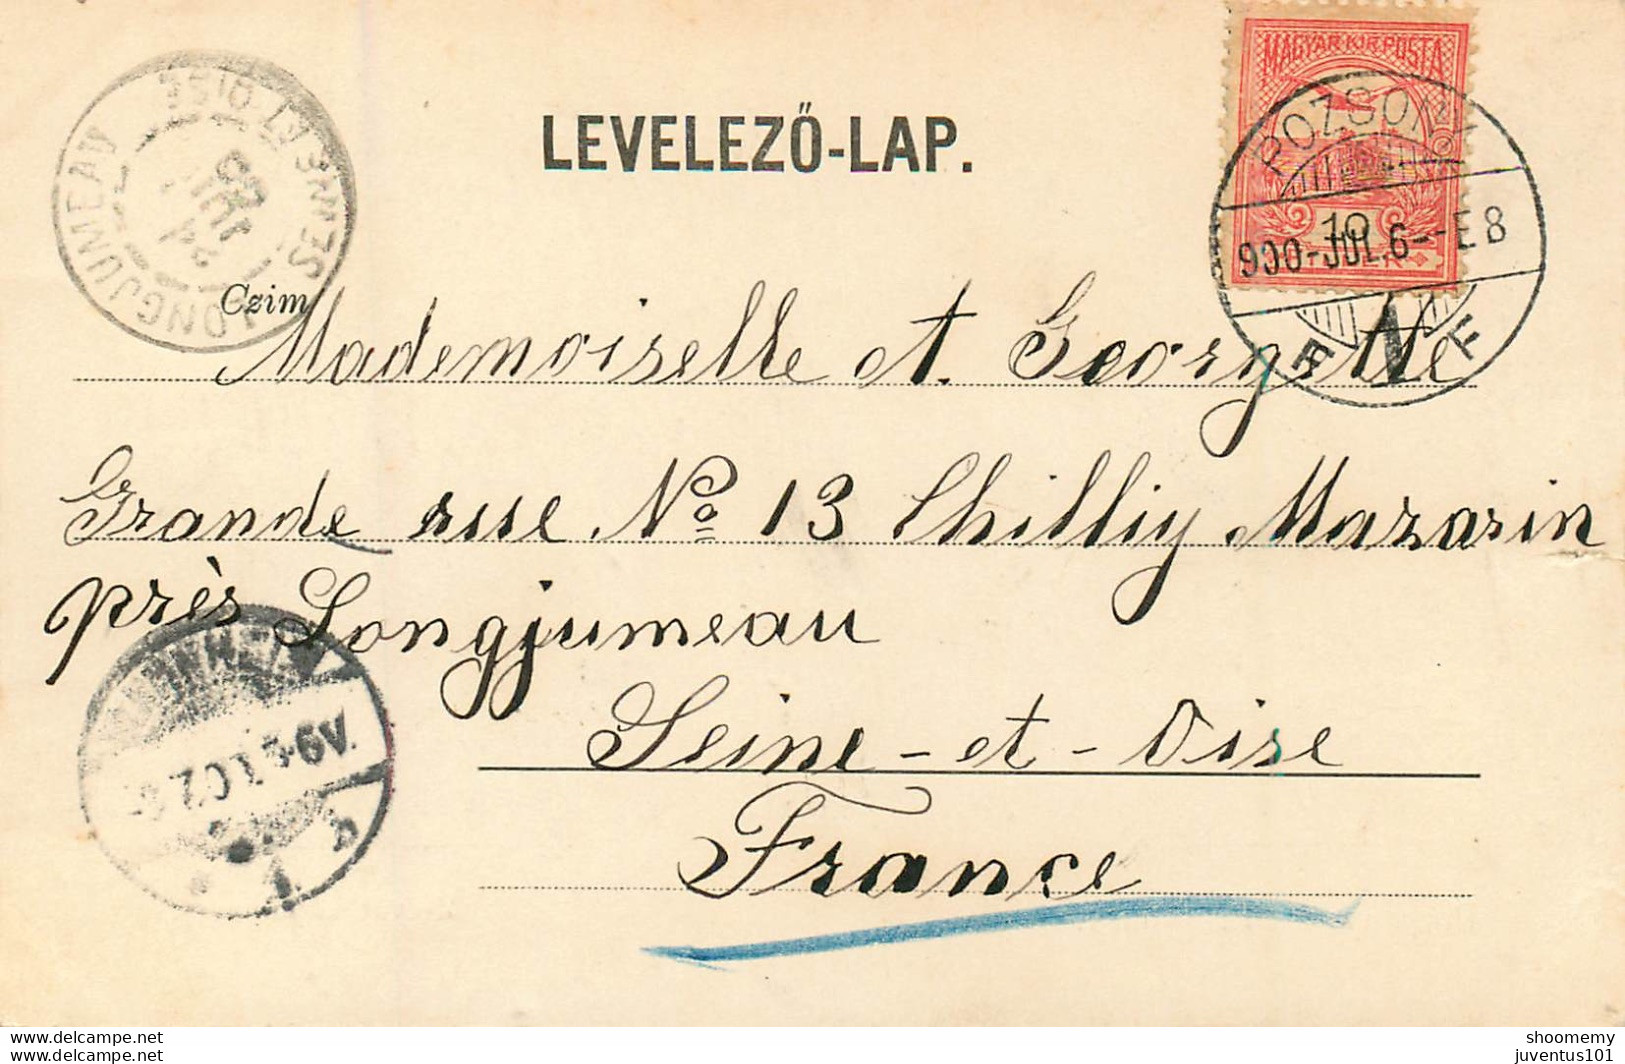 LEVELEZŐ-LAP.
MAGYAR KIR. POSTA
10
POZSONY
900-JUL.6--E8
LONGJUMEAU
SEINE-ET-OISE
Czim
Mademoiselle A. Georgette
Grande rue No 13 Chilliy Mazarin
près Longjumeau
Seine-et-Oise
France
6V.
shoomemy
juventus101